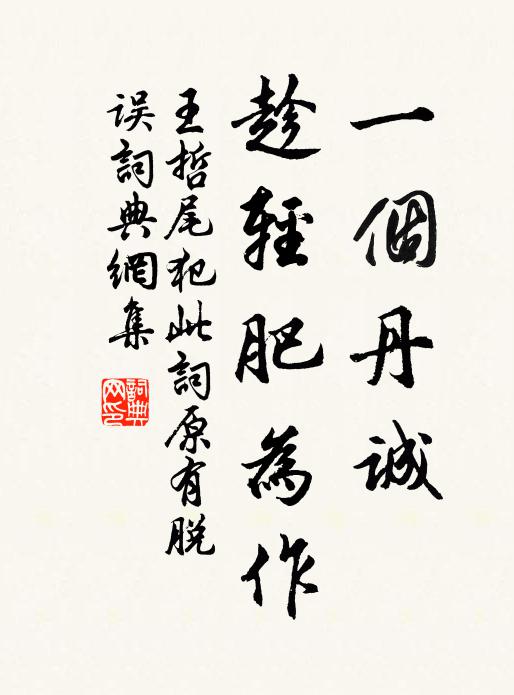 一個丹誠
趁輕肥為作
王哲尾犯此詞原有脫
误詞典網集
詞典网印